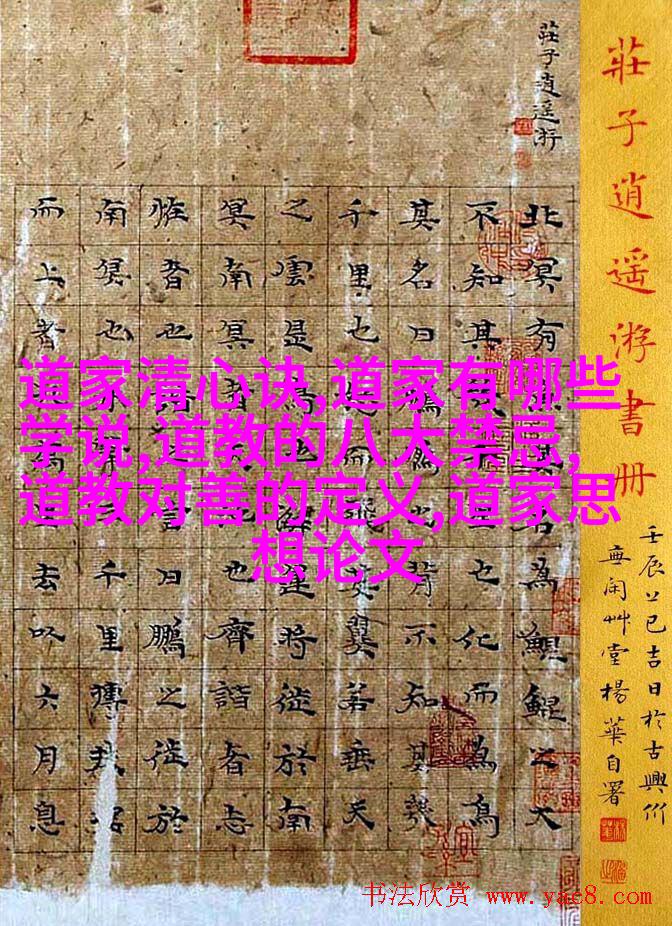 莊子逍遥游書册
壬辰上巳吉日於古興
無闲艸堂楊華自署
莊子逍遥游
北冥有其名為鯤鯤之大
不知其也化而為鳥
其名曰背不知其幾
千里也而飛其翼若垂天
之雲是鳥也運將徙於南
冥南冥者也齊諧者志
怪者也言曰鵬之徙於
南冥也千里摶扶搖
而上者去以六月息
道家清心诀,道家有哪些
学说,道教的八大禁忌,
道教对善的定义,道家思
想论文
书法欣赏 www.yac8.com